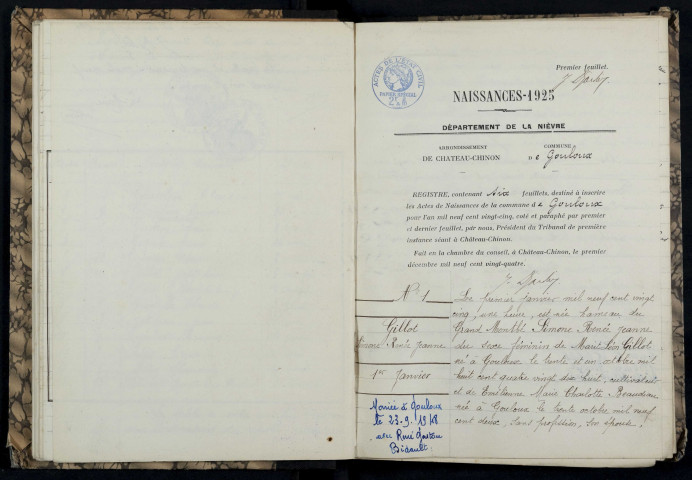 Premier feuillet.
ACTES DE L'ÉTAT CIVIL
PAPIER SPÉCIAL
NAISSANCES-1925
DÉPARTEMENT DE LA NIÈVRE
ARRONDISSEMENT
DE CHATEAU-CHINON
COMMUNE
de Gouloux
REGISTRE, contenant six feuillets, destiné à inscrire
les Actes de Naissances de la commune de Gouloux
pour l'an mil neuf cent vingt-cinq, coté et paraphé par premier
et dernier feuillet, par nous, Président du Tribunal de première
instance séant à Château-Chinon.
Fait en la chambre du conseil, à Château-Chinon, le premier
décembre mil neuf cent vingt-quatre.
N° 1
Gillot
Simone Renée Jeanne
1er Janvier
Mariée à Gouloux
le 23.9.1948
avec René Gaston
Bidault.
Le premier Janvier mil neuf cent vingt
cinq, une heure, est née hameau du
Grand Simone Renée Jeanne
du sexe féminin de Léon Gillot
né à Gouloux le trente et un octobre mil
huit cent quatre vingt dix huit, cultivateur
et de Marie Charlotte
née à Gouloux le trente octobre mil neuf
cent deux, sans profession, son épouse.